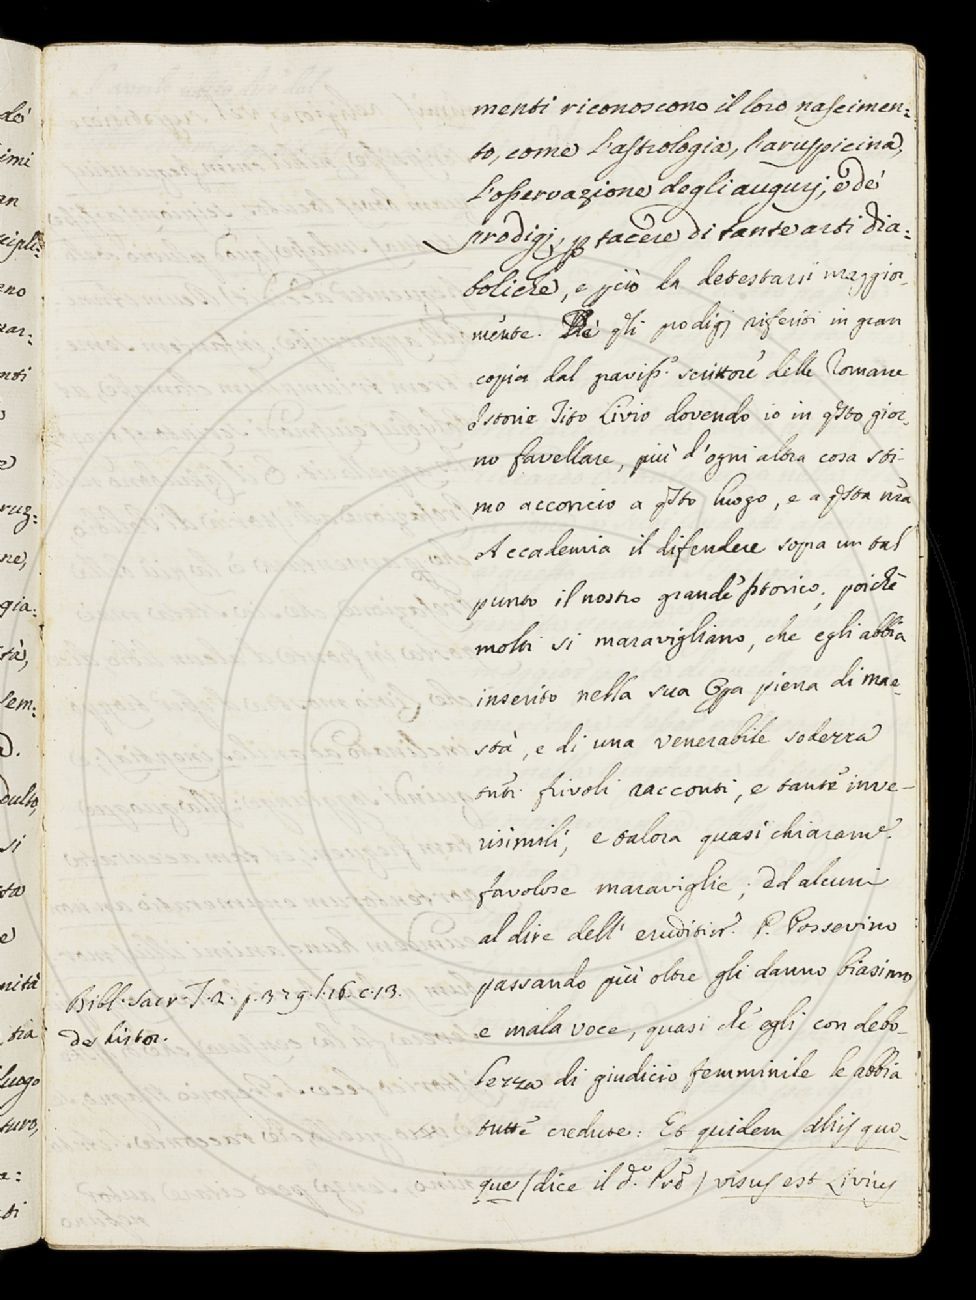 menti riconoscono il loro nascimen:
to, come l'astrologia, l'aruspicina,
l'osservazione degli augurj, e de'
prodigj, p tacere di tante arti dia:
boliche, e pciò la detestarsi maggior
mente. De' gli prodigj riferiti in gran
copia dal graviss.º scrittore delle Romane
Istorie Tito Livio dovendo io in qsto gior
no favellare, più d'ogni altra cosa sti-
mo acconcio a qsto luogo, e a qsta nra
Accademia il difendere sopra un tal
punto il nostro grande Istorico, poichè
molti si maravigliano, che egli abbia
inserito nella sua Opa piena di mae-
stà, e di una venerabile sodezza
tnti frivoli racconti, e tante inve-
risimili, e talora quasi chiaram.e
favolose maraviglie; Ed alcuni
al dire dell' eruditis.º P. Possevino
passando più oltre gli danno biasimo
e mala voce, quasi ch'egli con debo-
lezza di giudicio femminile le abbia
tutte credute: Et quidem aliis quo-
que (dice il d.º Prē) visus est Livius
Bibl. Sacr. T. 2. p. 329. l. 16. c. 13.
de histor.
dò
imi
an
ciplì:
eno
nti
e
ne,
gia:
tà,
sem:
dulto,
si
sta
e
nità
tia
luogo
turo,
a:
ti